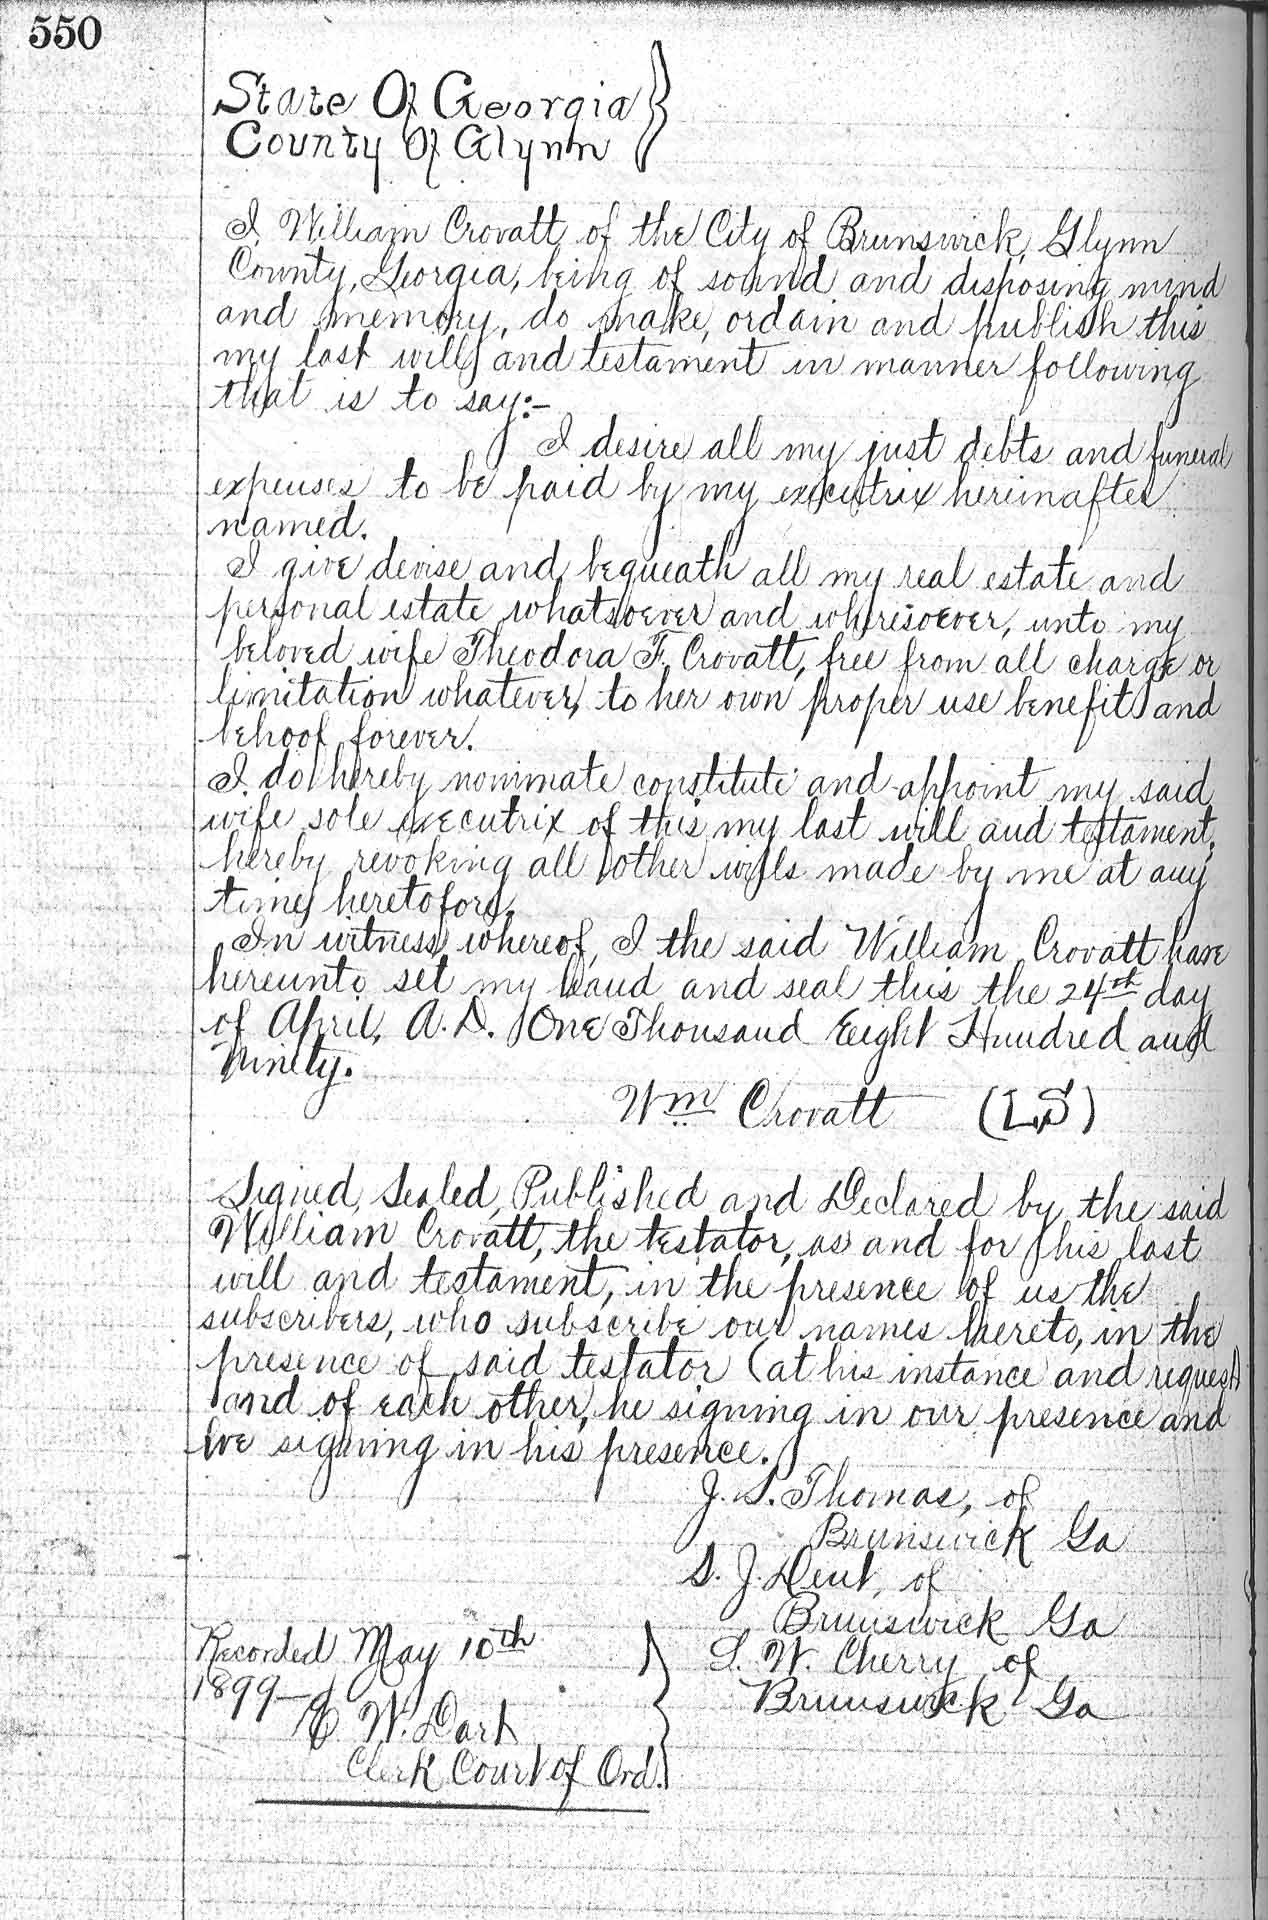 550
State Of Georgia
County Of Glynn
I, William Crovatt, of the City of Brunswick, Glynn
County, Georgia, being of sound and disposing mind
and memory, do make, ordain and publish this
my last will and testament in manner following
that is to say:-
I desire all my just debts and funeral
expenses to be paid by my executrix hereinafter
named.
I give devise and bequeath all my real estate and
personal estate whatsoever and wheresoever, unto my
beloved wife Theodora F. Crovatt, free from all charge or
limitation whatever, to her own proper use benefit and
behoof forever.
I do hereby nominate constitute and appoint my said
wife sole executrix of this my last will and testament,
hereby revoking all other wills made by me at any
time heretofore.
In witness whereof, I the said William Crovatt have
hereunto set my hand and seal this the 24th day
of April, A.D. One Thousand Eight Hundred and
Ninety.
Wm Crovatt (LS)
Signed, Sealed, Published and Declared by the said
William Crovatt, the testator, as and for his last
will and testament, in the presence of us the
subscribers, who subscribe our names hereto, in the
presence of said testator (at his instance and request)
and of each other, he signing in our presence and
we signing in his presence.
J. S. Thomas, of
Brunswick Ga
S. J. Dent, of
Brunswick Ga
L. W. Cherry of
Brunswick Ga
Recorded May 10th
1899—
W. Dart
Clerk Court of Ord.